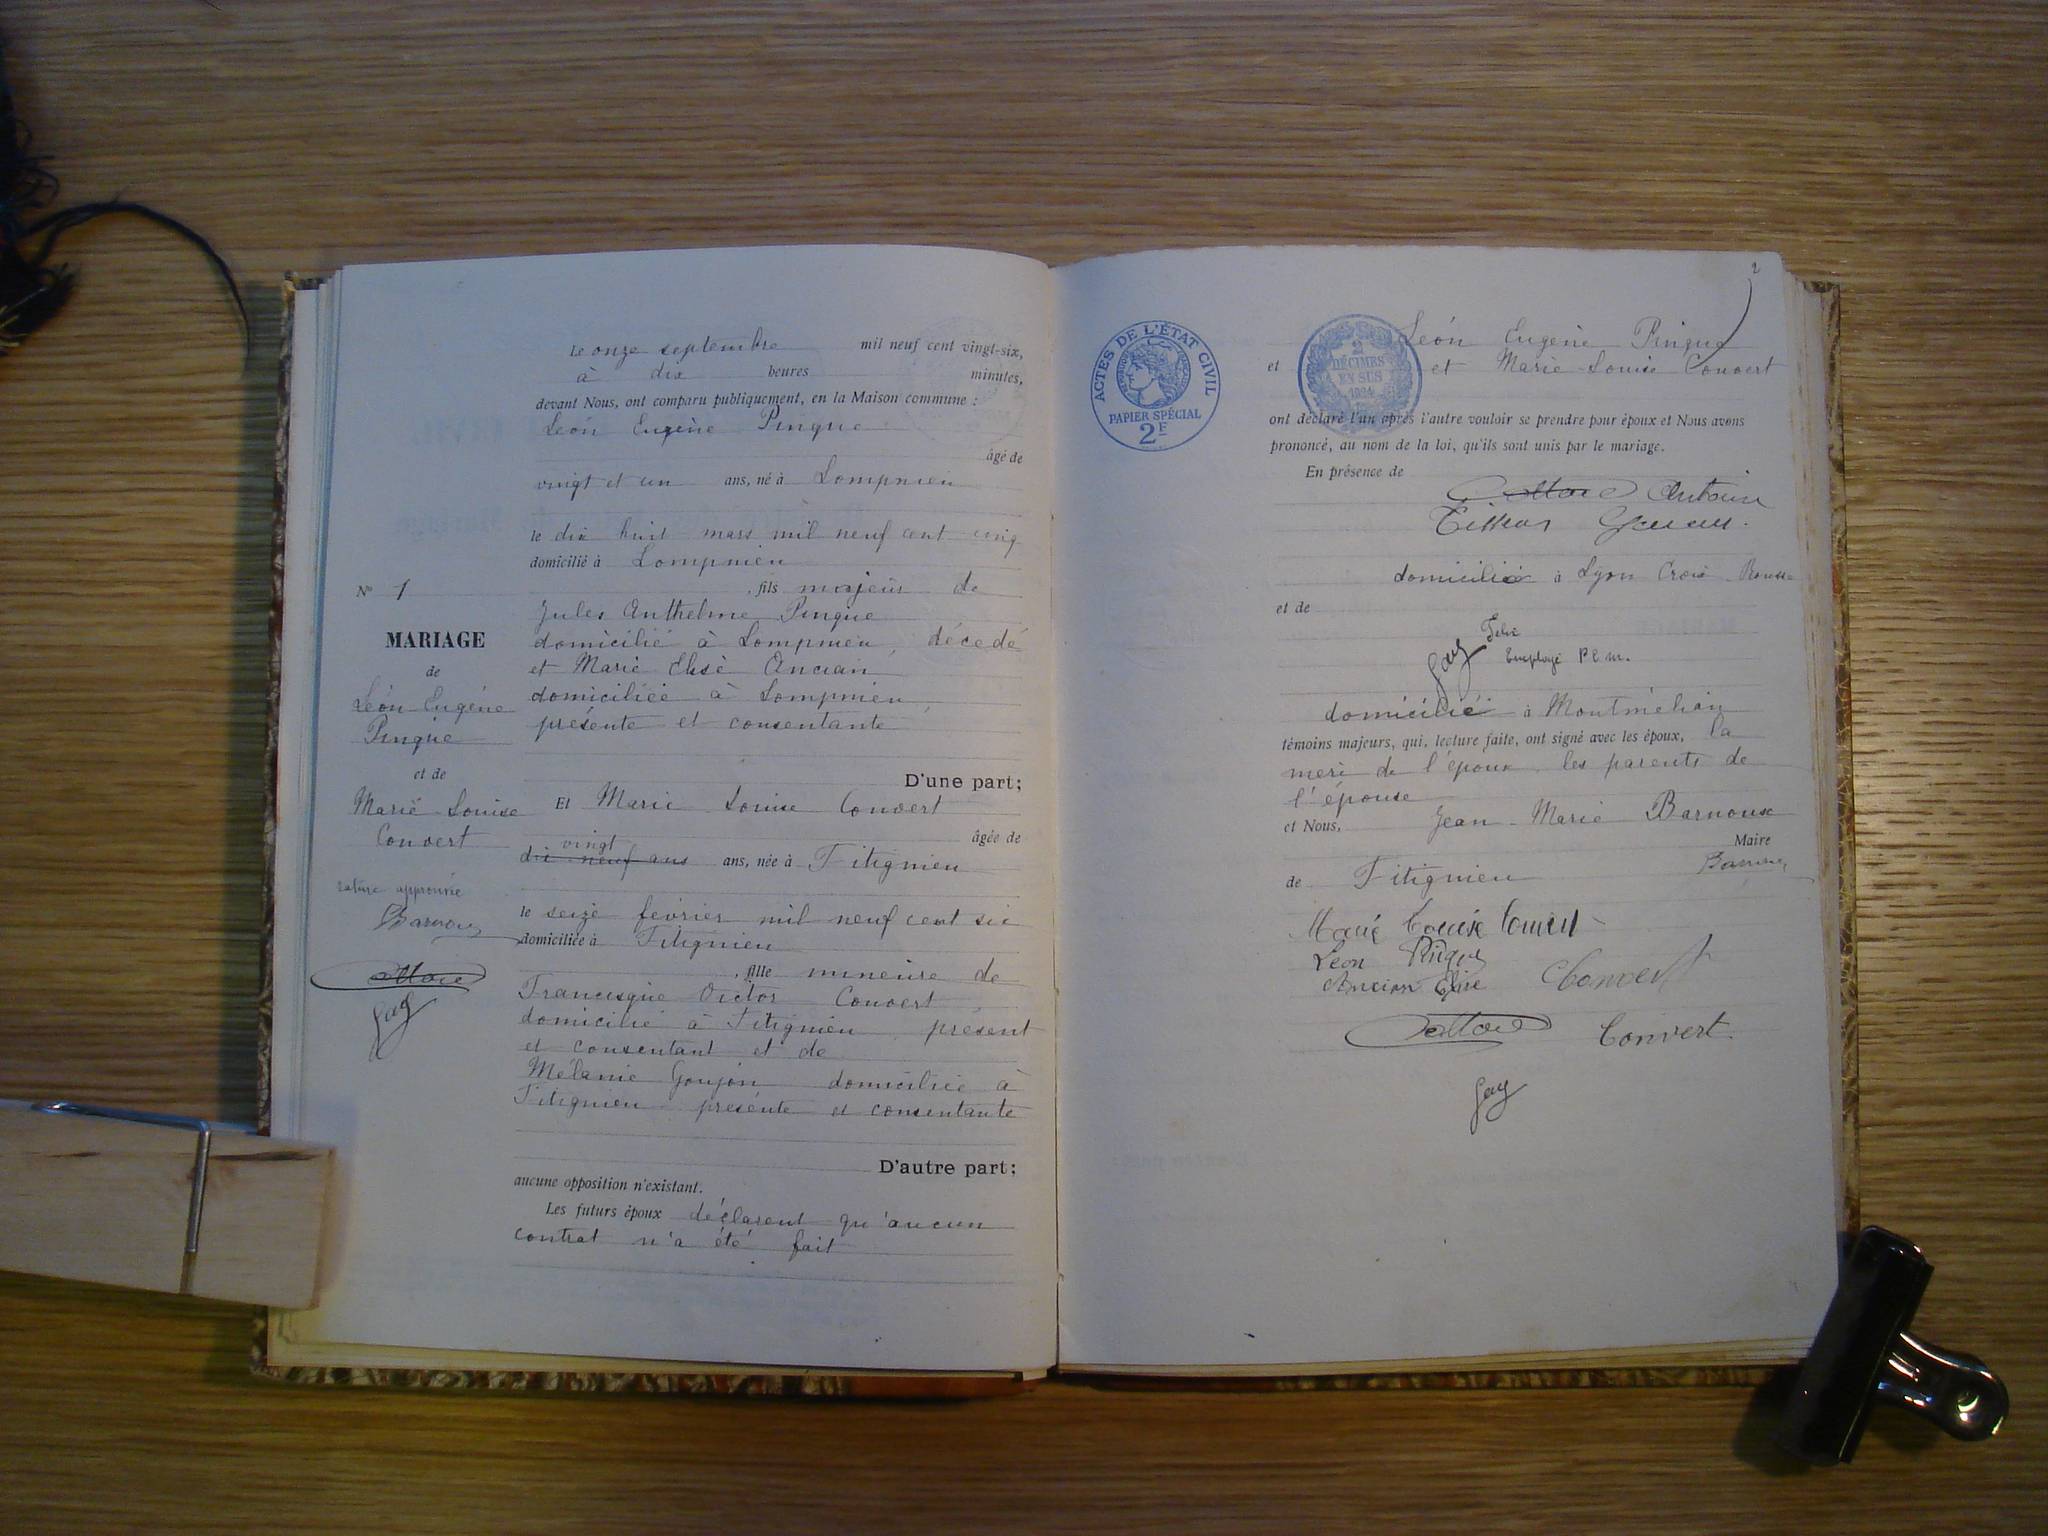 Le onze septembre mil neuf cent vingt-six,
à dix heures minutes,
devant Nous, ont comparu publiquement, en la Maison commune :
Léon Eugène Pingue
âgé de
vingt et un ans, né à Lompnieu
le dix huit mars mil neuf cent cinq
domicilié à Lompnieu
, fils majeur de
Jules Anthelme Pingue
domicilié à Lompnieu, décedé
et Marie Elise Ancian
domiciliée à Lompnieu,
présente et consentante
D'une part;
Et Marie Louise Convert
âgée de
vingt
dix neuf ans ans, née à Fitignieu
le seize février mil neuf cent six
domiciliée à Fitignieu
, fille mineure de
Francisque Victor Convert
domicilié à Fitignieu présent
et consentant et de
Mélanie Goujon domiciliée à
Fitignieu présente et consentante
D'autre part;
aucune opposition n'existant.
Les futurs époux déclarent qu'aucun
contrat n'a été fait
N° 1
MARIAGE
de
Léon Eugène
Pingue
et de
Marie Louise
Convert
rature approuvée
Barnoux
Gay
2
ACTES DE L'ÉTAT CIVIL
PAPIER SPÉCIAL
2F
2
DÉCIMES
EN SUS
Léon Eugène Pingue
et et Marie-Louise Convert
ont déclaré l'un après l'autre vouloir se prendre pour époux et Nous avons
prononcé, au nom de la loi, qu'ils sont unis par le mariage.
En présence de
Antoine
domicilié à Lyon Croix Rousse
et de
Gay
Employé P.L.M.
domicilié à Montmélian
témoins majeurs, qui, lecture faite, ont signé avec les époux, la
mère de l'époux les parents de
l'épouse
et Nous, Jean-Marie Barnoux
Maire
de Fitignieu
Marie Louise Convert
Léon Pingue
Ancian Elise Convert
Convert
Gay